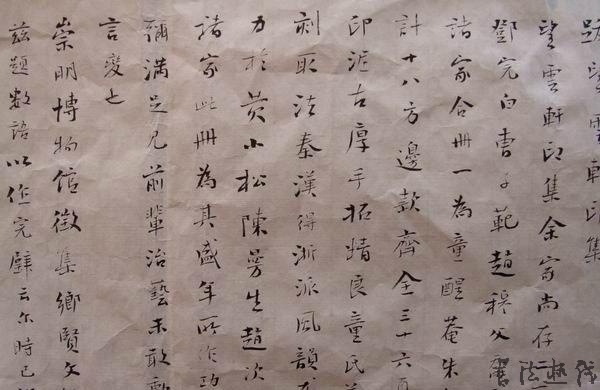 跋望雲軒印集
望雲軒印集余家尚存二
鄧完白曹子範趙穆父
諸家合冊一為童醒菴朱
計十八方邊款齊全三十六頁
印泥古厚手拓精良童氏
刻取法秦漢得浙派風韻
力於黄小松陳曼生趙次
諸家此冊為其盛年所作功
彌滿足見前輩治藝未敢
言變也
崇明博物館徵集鄉賢文
兹題數語以作完璧云尔時己
書法技